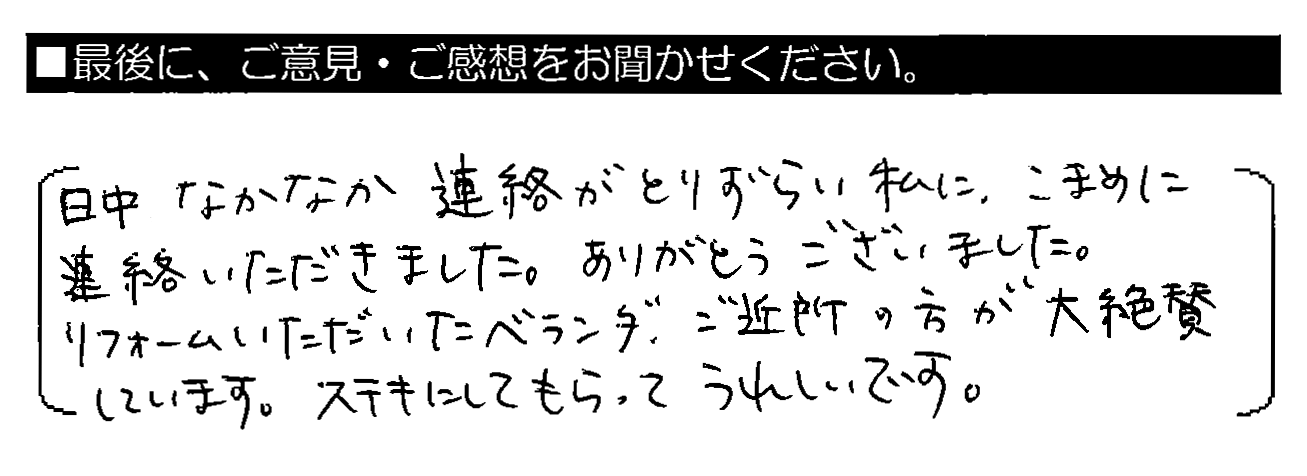 ■最後に、ご意見・ご感想をお聞かせください。
日中 なかなか 連絡がとりずらい 私に、こまめに
連絡いただきました。ありがとうございました。
リフォームいただいたベランダ、ご近所の方が大絶賛
しています。ステキにしてもらって うれしいです。